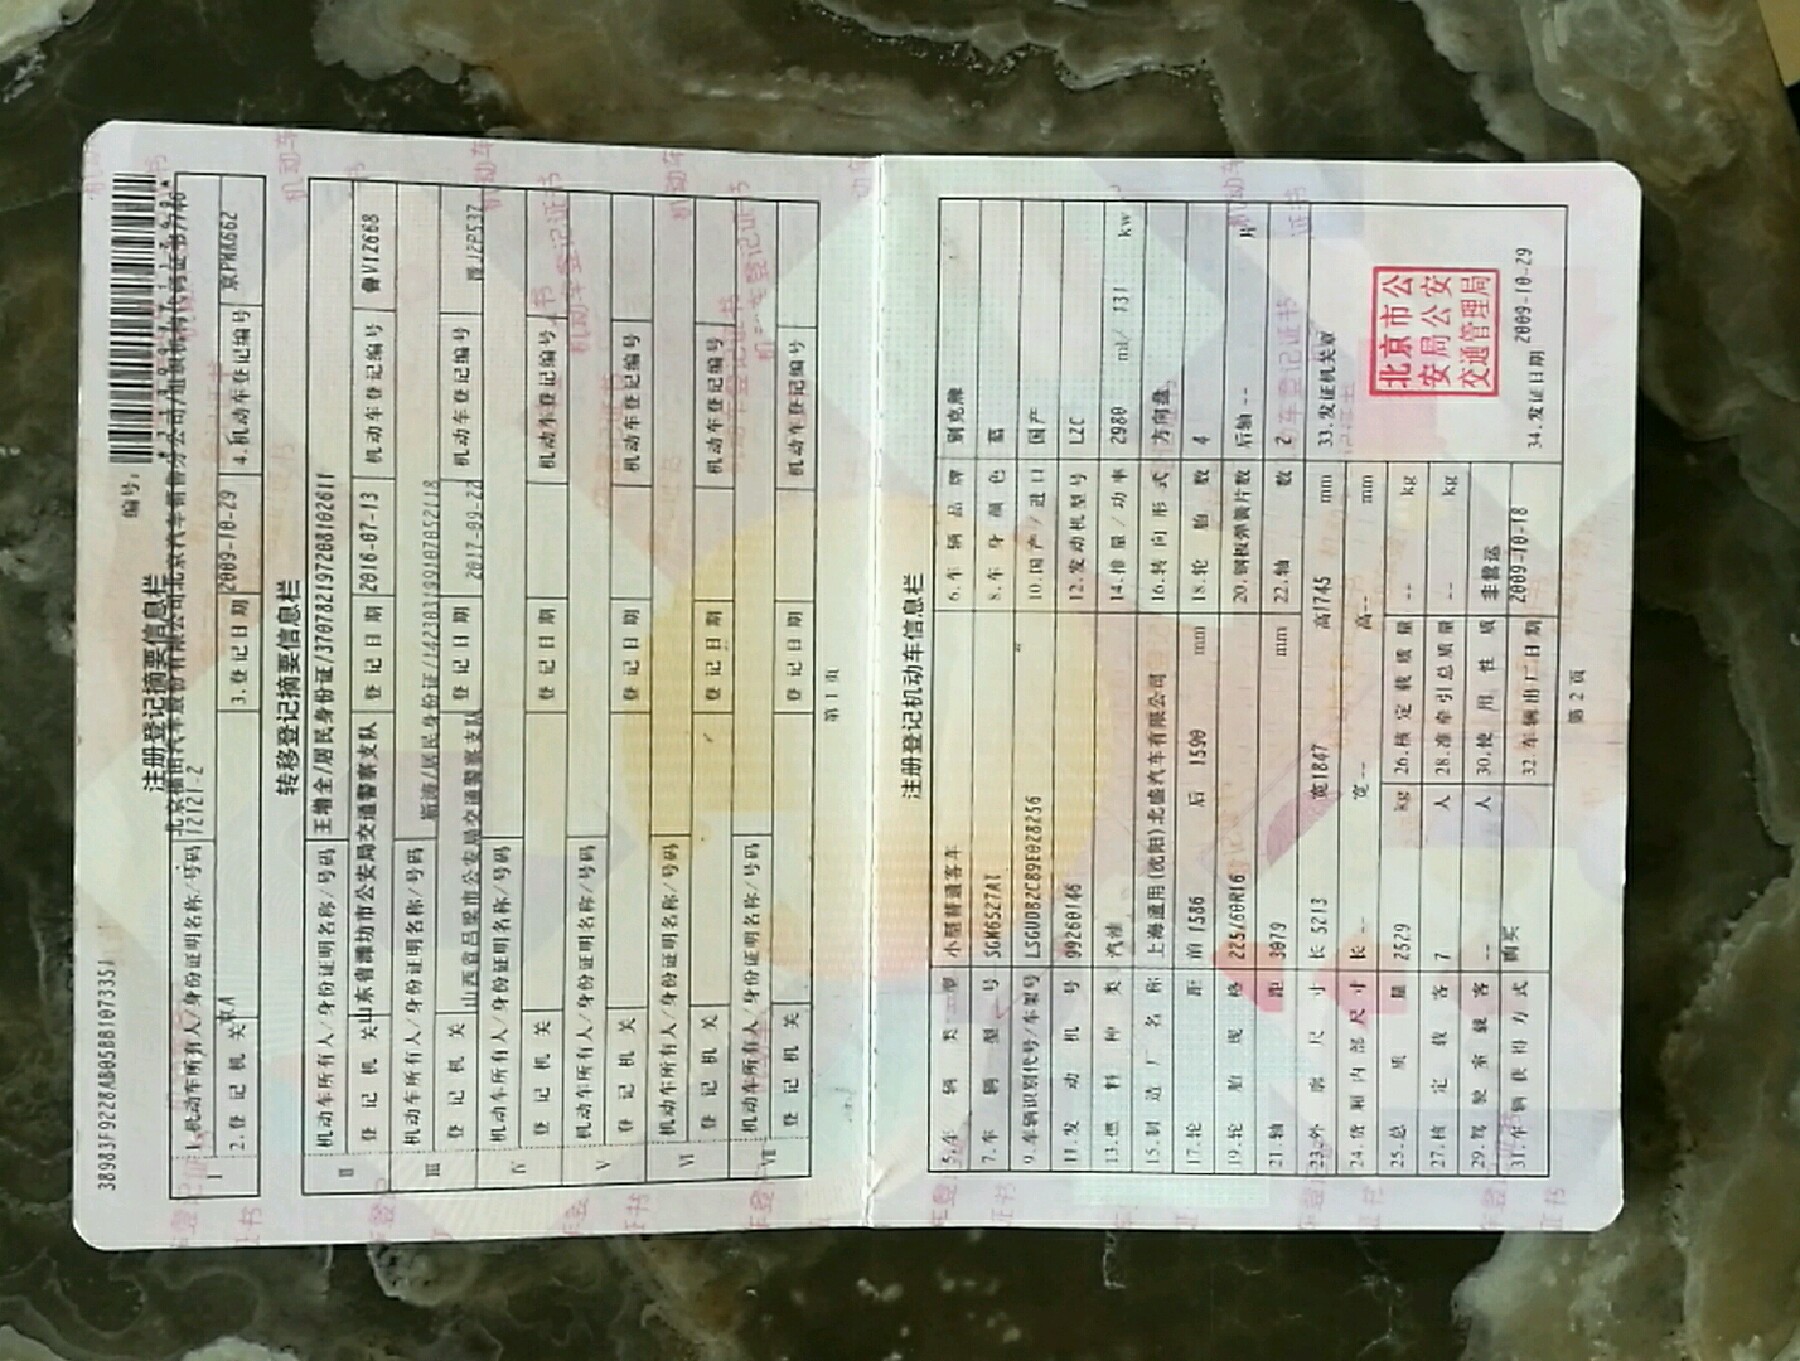 38983F9228AB05BB1073351
编号:
注册登记摘要信息栏
I 1.机动车所有人/身份证明名称/号码 北京福田汽车股份有限公司北京汽车销售分公司/组织机构代码证书/
12121-2
2.登记机关 京A 3.登记日期 2009-10-29 4.机动车登记编号 京PMK662
转移登记摘要信息栏
II 机动车所有人/身份证明名称/号码 王增全/居民身份证/370782197208102611
登记机关 山东省潍坊市公安局交通警察支队 登记日期 2016-07-13 机动车登记编号 鲁V1Z668
III 机动车所有人/身份证明名称/号码 /居民身份证/142301199107052118
登记机关 山西省吕梁市公安局交通警察支队 登记日期 2017-09-22 机动车登记编号 晋J2P537
IV 机动车所有人/身份证明名称/号码
登记机关 登记日期 机动车登记编号
V 机动车所有人/身份证明名称/号码
登记机关 登记日期 机动车登记编号
VI 机动车所有人/身份证明名称/号码
登记机关 登记日期 机动车登记编号
VII 机动车所有人/身份证明名称/号码
登记机关 登记日期 机动车登记编号
第 1 页
注册登记机动车信息栏
5.车辆类型 小型普通客车 6.车辆品牌 别克牌
7.车辆型号 SGM6527AT 8.车身颜色 蓝
9.车辆识别代号/车架号 LSGUD82C89E028256 10.国产/进口 国产
11.发动机号 99260146 12.发动机型号 LZC
13.燃料种类 汽油 14.排量/功率 2980 ml/ 131 kw
15.制造厂名称 上海通用(沈阳)北盛汽车有限公司 16.转向形式 方向盘
17.轮距 前 1586 后 1590 mm 18.轮胎数 4
19.轮胎规格 225/60R16 20.钢板弹簧片数 后轴 -- 片
21.轴距 3079 mm 22.轴数 2
23.外廓尺寸 长 5213 宽1847 高1745 mm 33.发证机关章
24.货厢内部尺寸 长 -- 宽 -- 高 -- mm
25.总质量 2529 kg 26.核定载质量 -- kg
27.核定载客 7 人 28.准牵引总质量 -- kg
29.驾驶室载客 -- 人 30.使用性质 非营运
31.车辆获得方式 购买 32.车辆出厂日期 2009-10-18 34.发证日期 2009-10-29
北京市公
安局公安
交通管理局
第 2 页